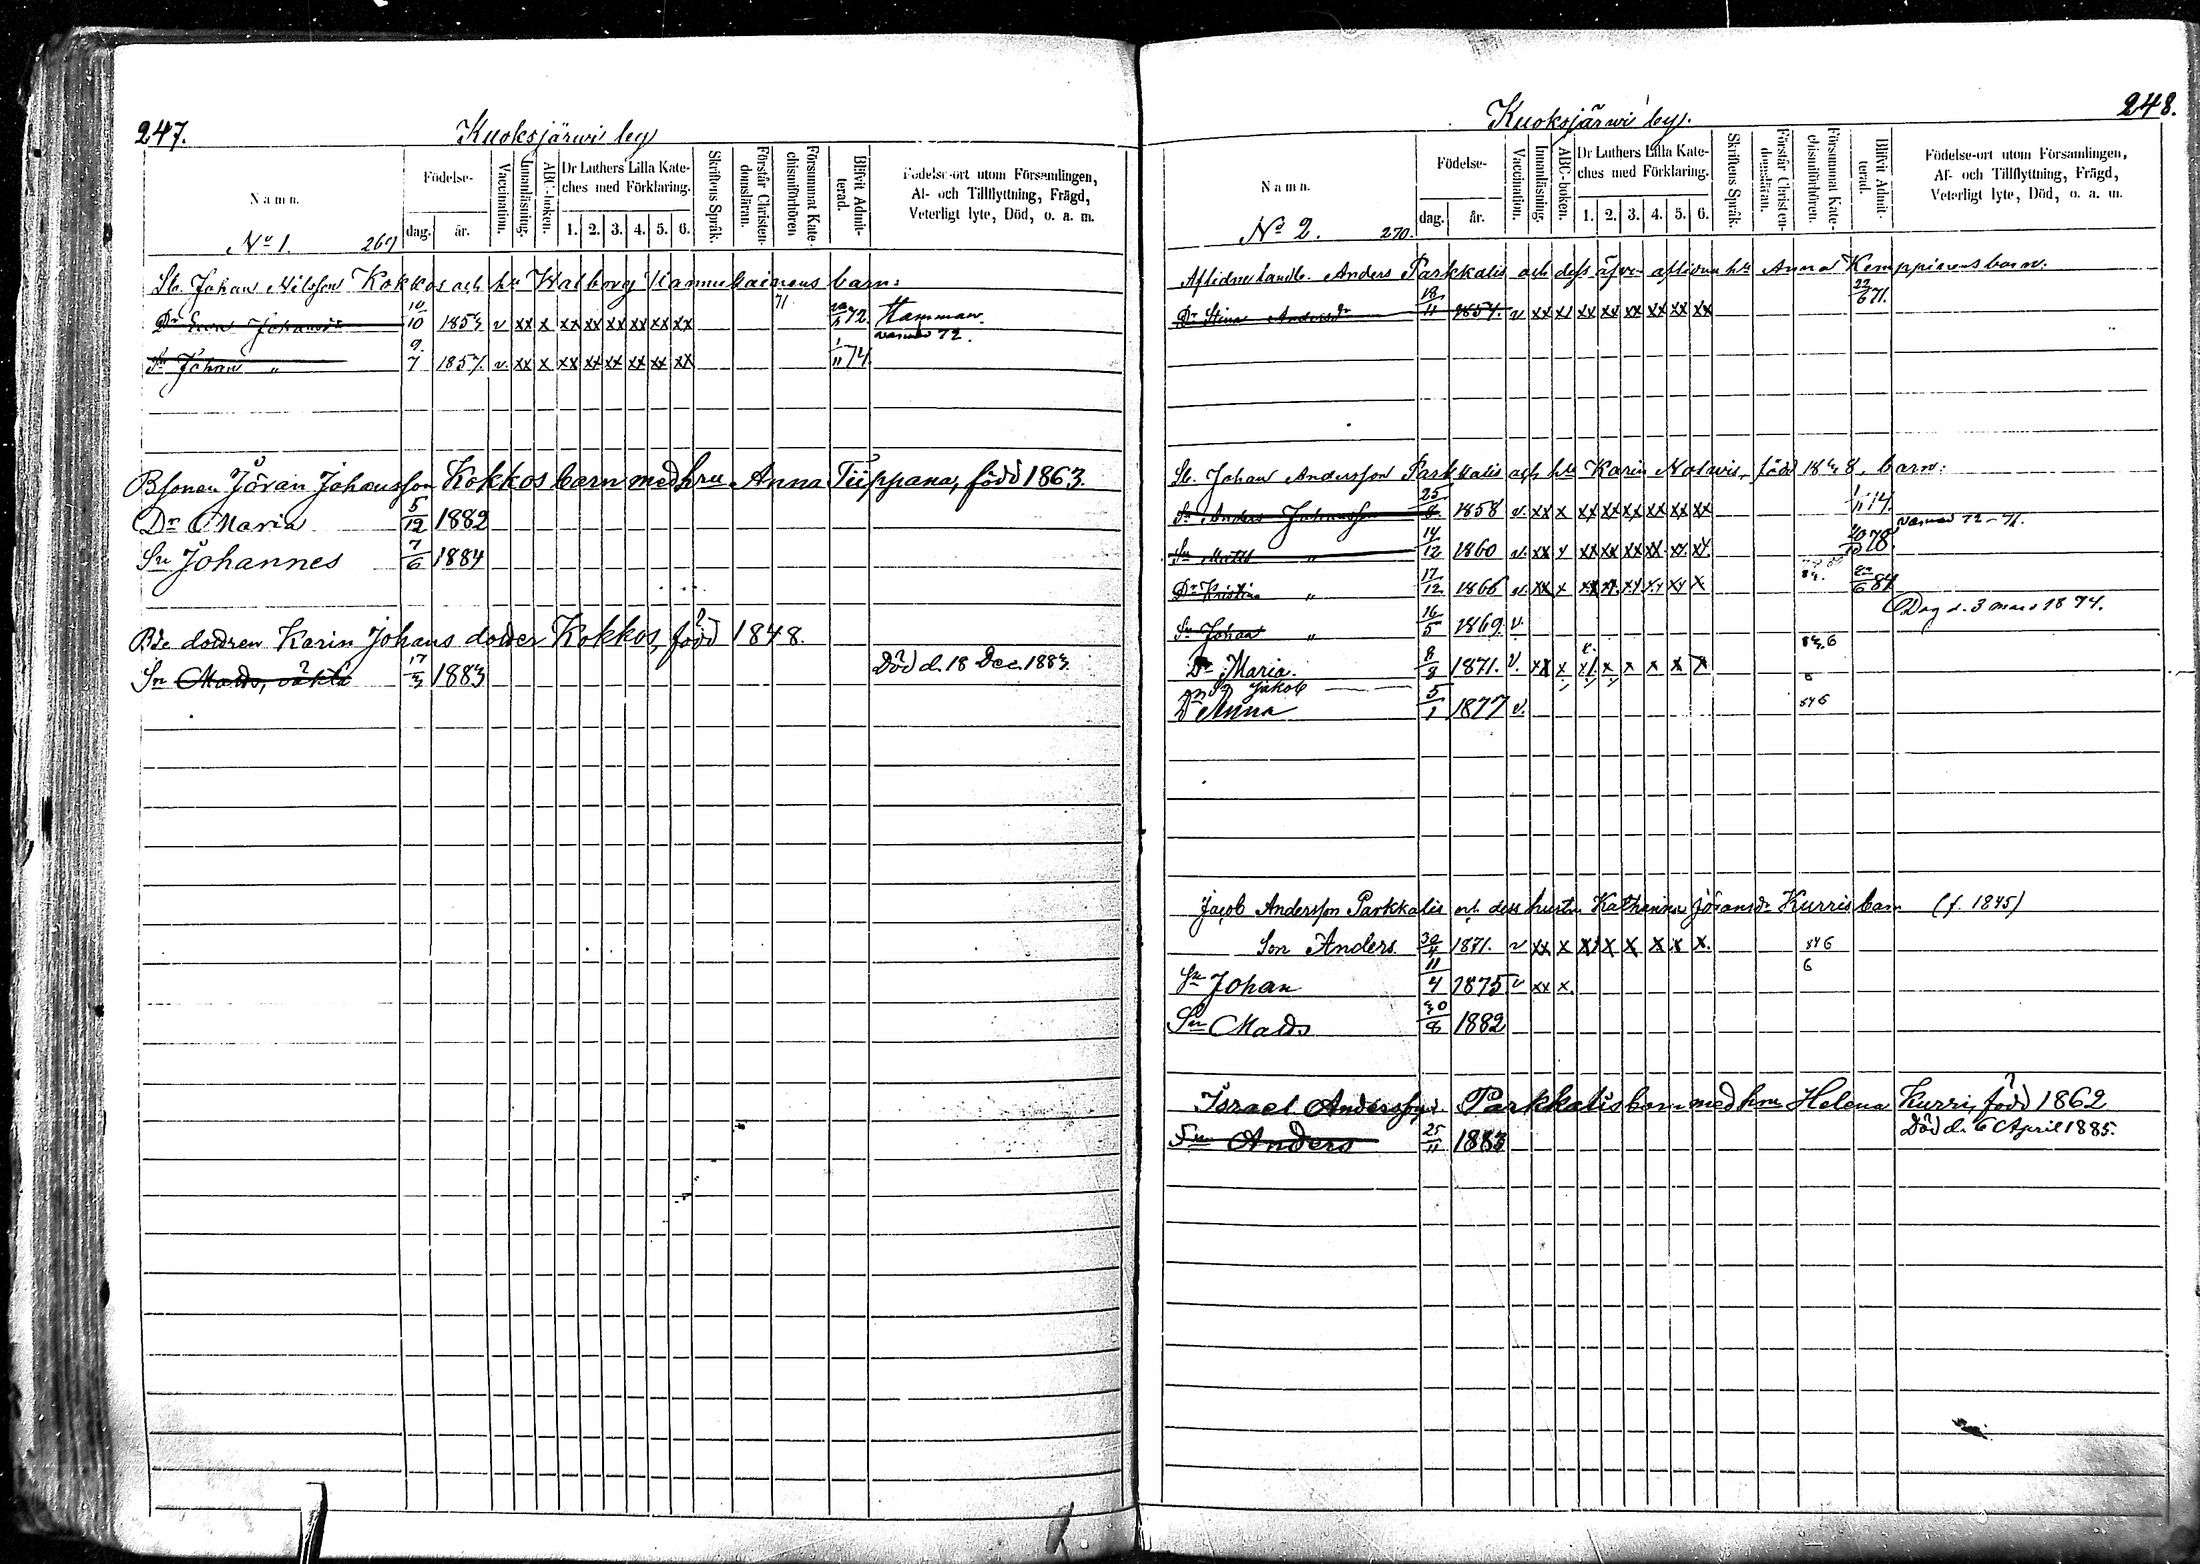 247.
Kuoksjärwi by
Namn.
Födelse-
dag.
år.
Vaccination.
Innanläsning.
ABC-boken.
Dr Luthers Lilla Kate-
ches med Förklaring.
1. 2. 3. 4. 5. 6.
Skriftens Språk.
Förstår Christen-
domsläran.
Försummat Kate-
chismiförhören
Blifvit Admit-
terad.
Födelse-ort utom Församlingen,
Af- och Tillflyttning, Frägd,
Veterligt lyte, Död, o. a. m.
No 1. 269
Johan Nilsson Kokkos och hu Walborg Hannukainens barn:
Dr Ewa Johansdr 10/10 1853 v xx x xx xx xx xx xx xx 71 72. Stamman.
varnad 72.
Sn Johan " 9/7 1857. v. xx x xx xx xx xx xx xx 1/11 74.
Bsonen Jöran Johansson Kokkos barn med hru Anna Tiippana, född 1863.
Dr Maria 5/12 1882
Sn Johannes 7/6 1884
Bde dottren Karin Johans dotter Kokkos, född 1848.
Sn Matts, oäkta 17/3 1883 Död d. 18 Dec. 1883.
248.
Kuoksjärwi by.
Namn.
Födelse-
dag.
år.
Vaccination.
Innanläsning.
ABC-boken.
Dr Luthers Lilla Kate-
ches med Förklaring.
1. 2. 3. 4. 5. 6.
Skriftens Språk.
Förstår Christen-
domsläran.
Försummat Kate-
chismiförhören.
Blifvit Admit-
terad.
Födelse-ort utom Församlingen,
Af- och Tillflyttning, Frägd,
Veterligt lyte, Död, o. a. m.
No 2. 270.
Aflidne landb. Anders Parkkalis och dess äfven aflidna hu Anna Kemppinens barn.
Dr Stina Andersdr 18/11 1854. v xx x xx xx xx xx xx xx 22/6 71.
Johan Andersson Parkkalis och hu Karin född 1838, barn:
Sn Anders Johansson 25/8 1858 v. xx x xx xx xx xx xx xx 1/11 74.
varnad 72-71.
Sn Matts " 14/12 1860 v. xx x xx xx xx xx xx xx 78.
Dr Kristina " 17/12 1866 v. xx x xx xx xx xx xx x 84
Sn Johan " 16/5 1869. v. Dog d. 3 mars 1874.
Dr Maria. 8/8 1871. v. xx x x x x x x x 83, 6
Sn Jakob 6
Dr Anna 5/1 1877 v. 84 6
Jacob Andersson Parkkalis och dess hustru Katharina Jöransdr Kurris barn (f. 1845)
Son Anders 30/4 1871. v xx x xx x x x x x. 84 6
Sn Johan 11/4 1875 v xx x. 6
Sn Matts 30/8 1882
Israel Anderssons Parkkalis barn med hru Helena Kurri, född 1862
Sn Anders 25/11 1883 Död d. 6 April 1885.